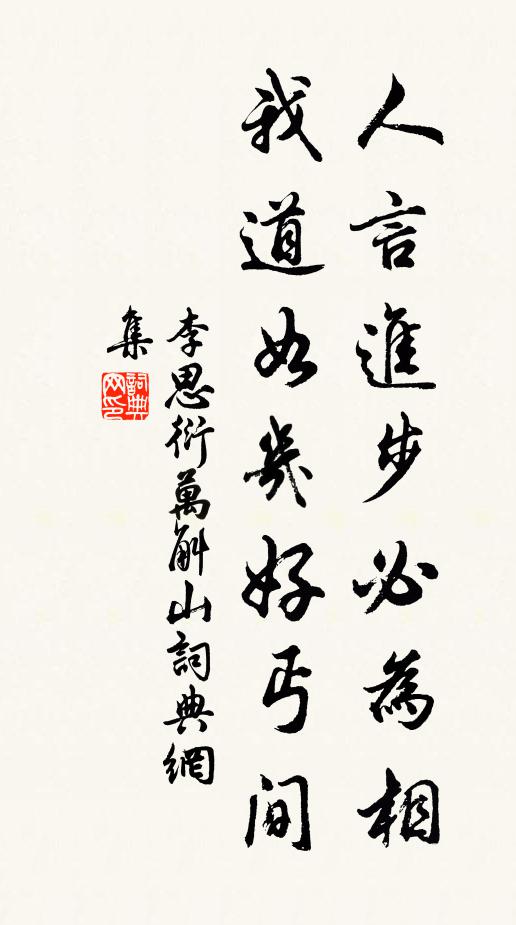 人言進步必為相
我道如幾好丐間
李思衍萬斛山詞典網
集
詞典网印